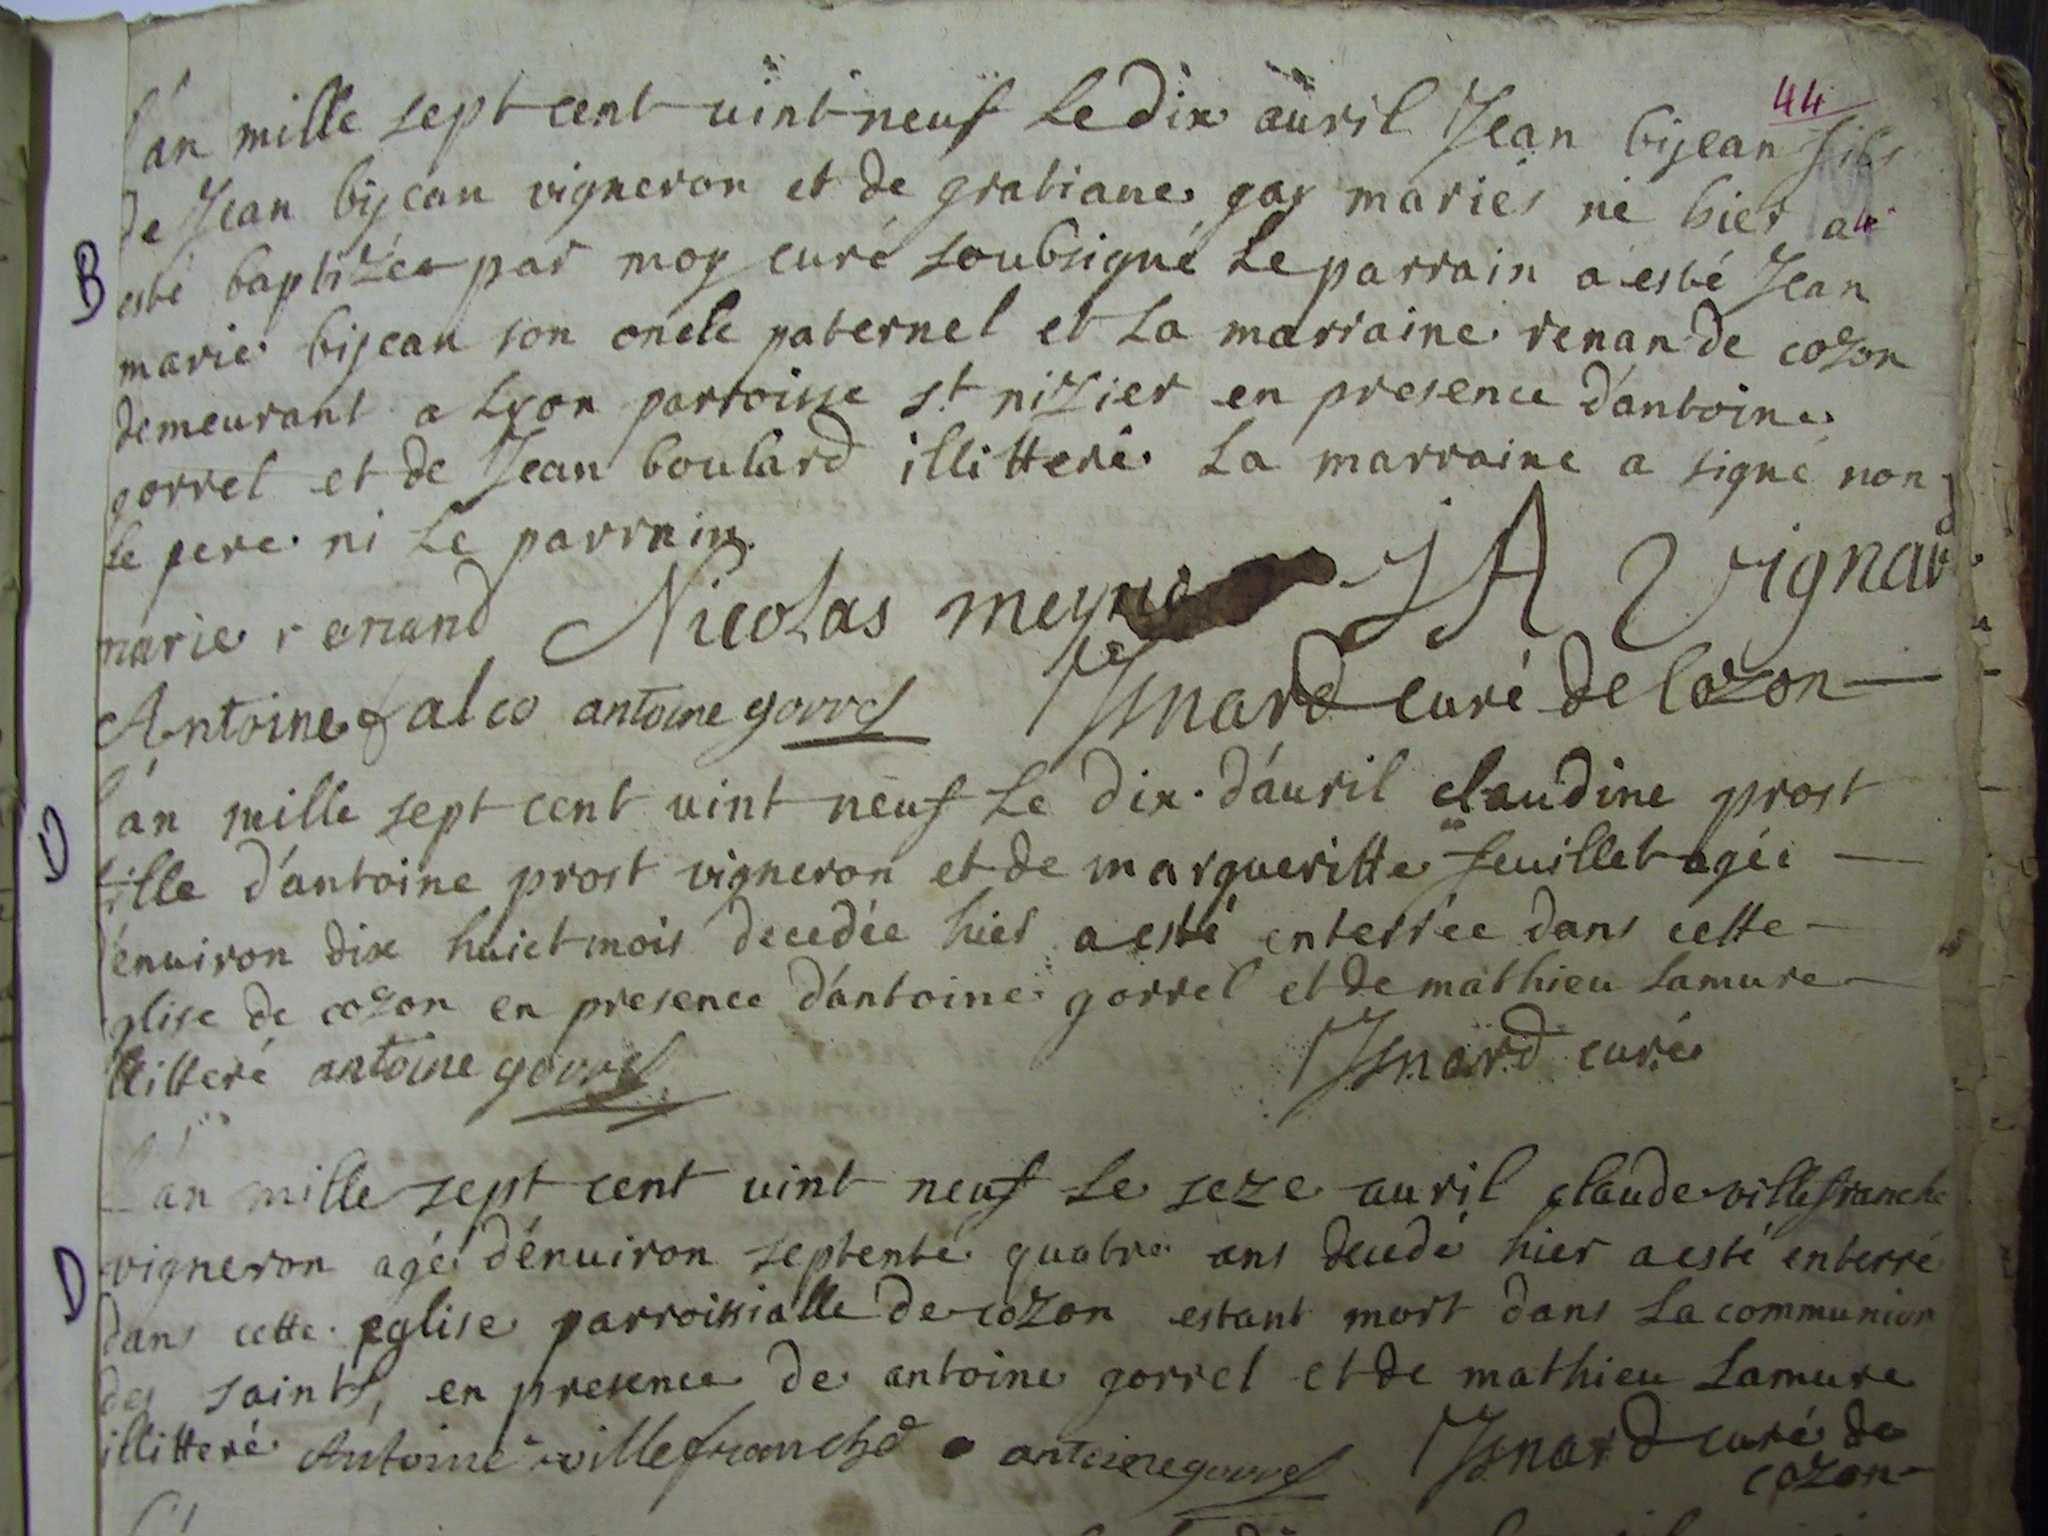 44
l'an mille sept cent vint neuf le dix auril Jean bijean fils
de Jean bijean vigneron et de gratiane gay mariés né hier a
B
esté baptizée par moy curé soubsigné le parrain a esté Jean
marie bijean son oncle paternel et la marraine renan de cozon
demeurant a Lyon parroisse s.t nizier en presence d'antoine
gorrel et de Jean boulard illitteré la marraine a signé non
le pere ni le parrain
marie renand Nicolas meyn JA Vignar
Antoine falco antoine gorrel Isnard curé de Cozon
l'an mille sept cent vint neuf le dix d'auril claudine prost
D
fille d'antoine prost vigneron et de margueritte feuillet agée
d'enuiron dix huict mois decedée hier a esté enterrée dans cette
eglise de cozon en presence d'antoine gorrel et de mathieu Lamure
illitteré antoine gorrel Isnard curé
l'an mille sept cent vint neuf le seze auril claude villefranche
D
vigneron agé d'énuiron septente quatre ans decedé hier a esté enterré
dans cette eglise parroissialle de cozon estant mort dans la communion
des saints, en presence de antoine gorrel et de mathieu Lamure
illitteré Antoine villefranche antoine gorrel Isnard curé de
cozon